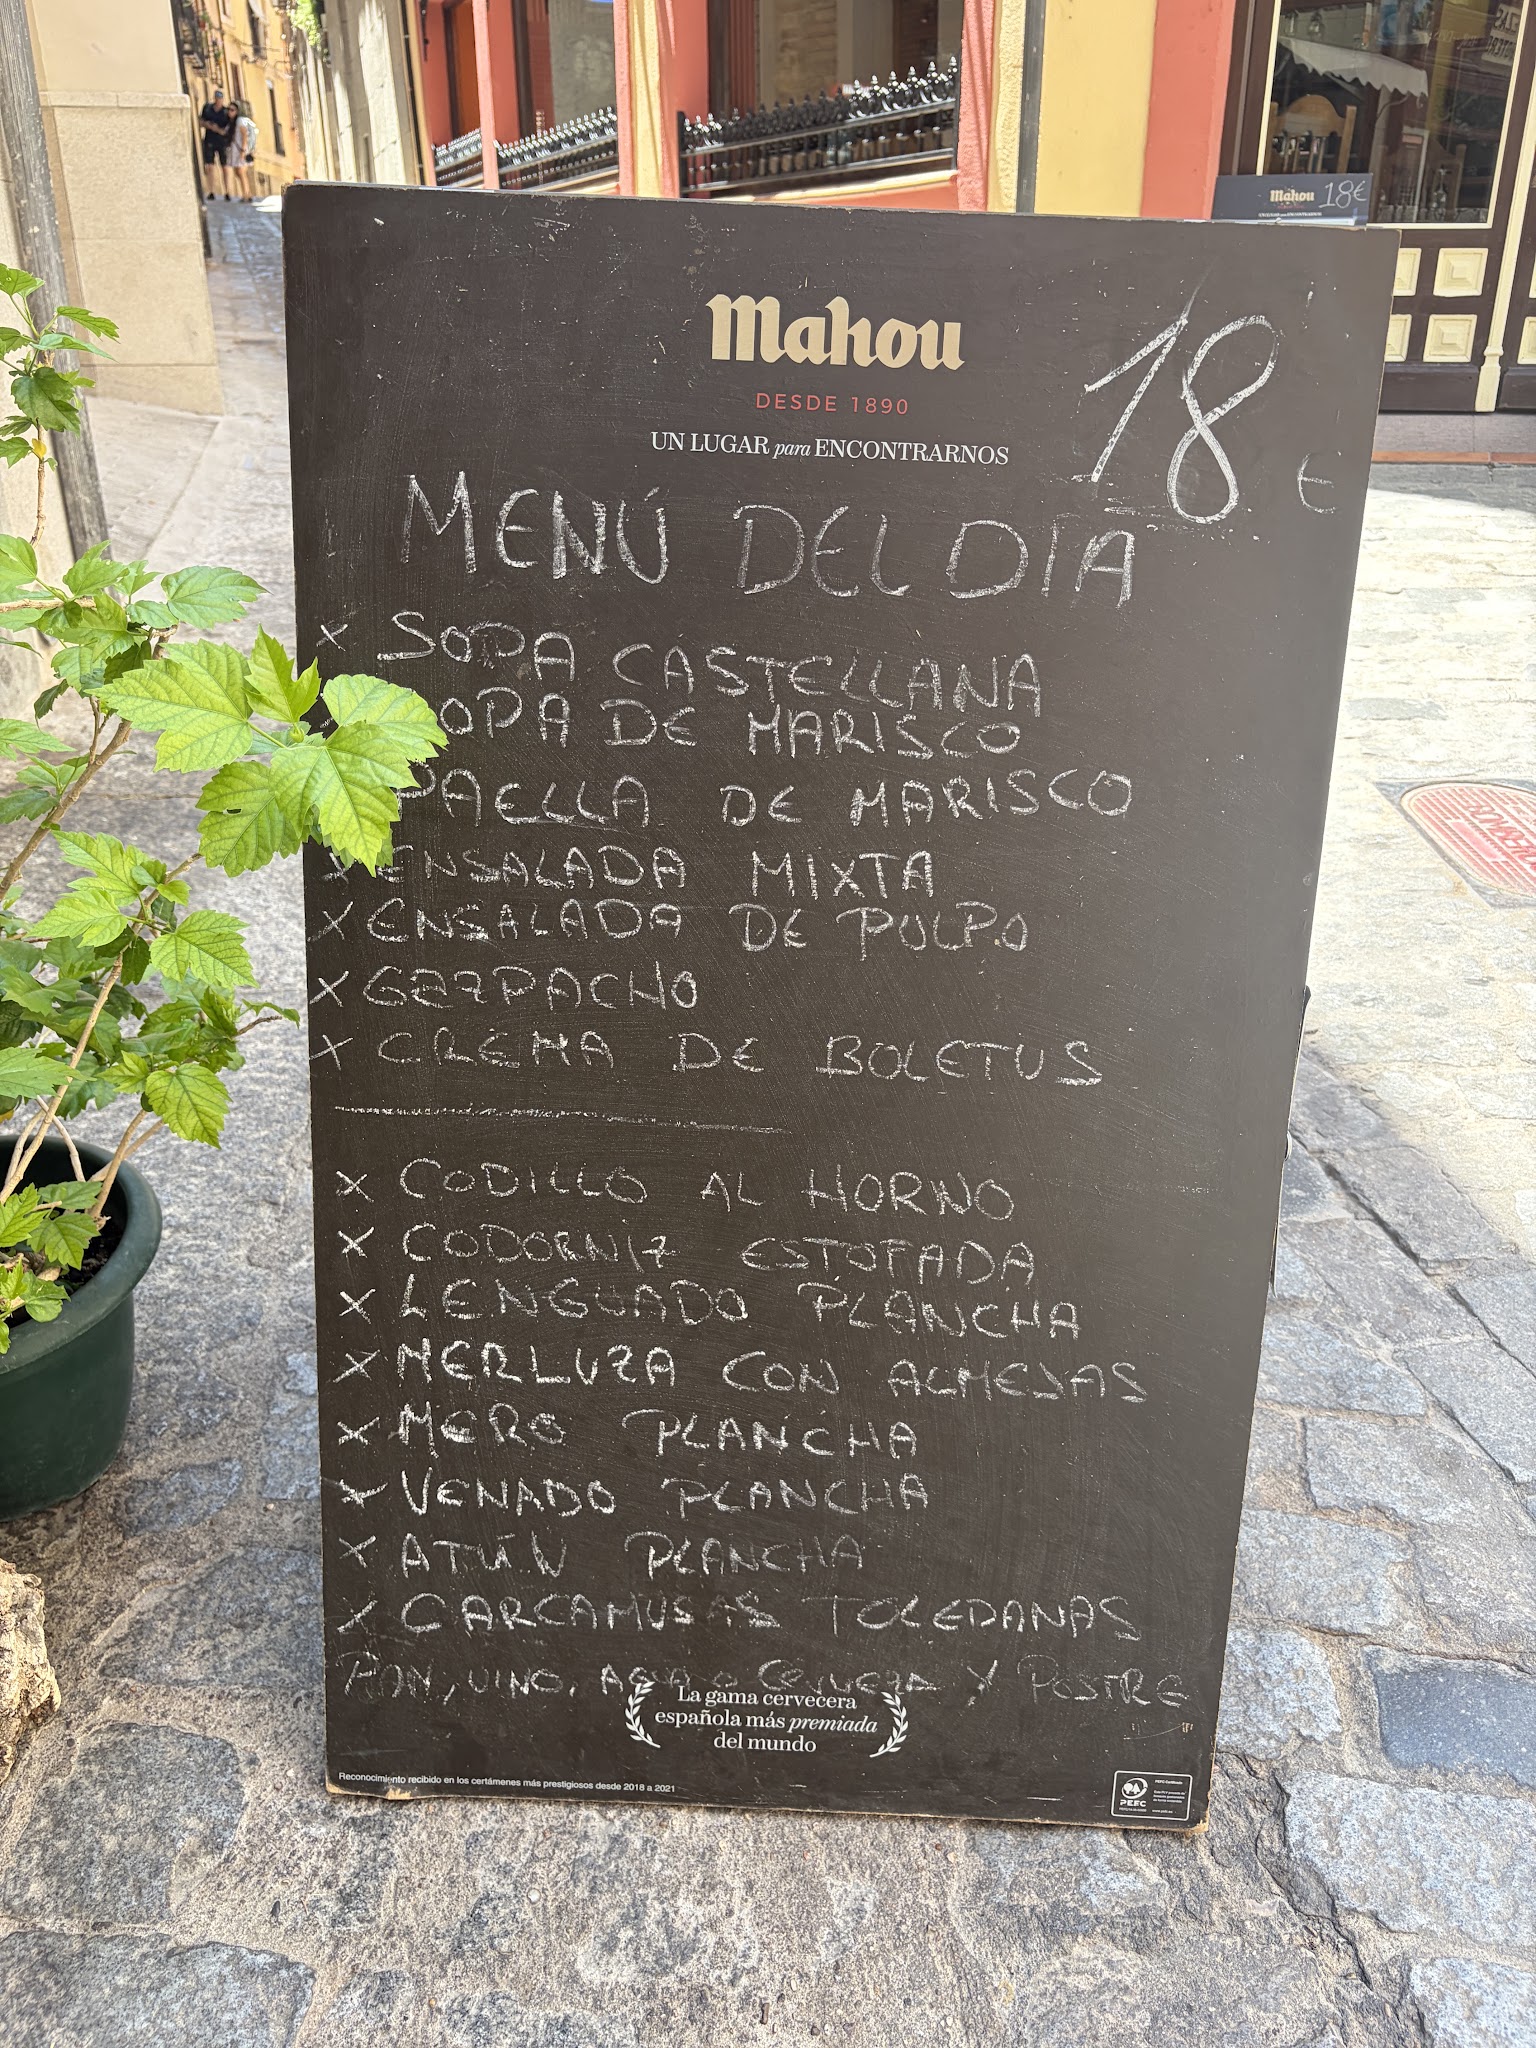 Mahou 18€
Mahou
DESDE 1890
UN LUGAR para ENCONTRARNOS
18 €
MENÚ DEL DIA
x SOPA CASTELLANA
OPA DE MARISCO
PAELLA DE MARISCO
x ENSALADA MIXTA
x ENSALADA DE PULPO
x GAZPACHO
x CREMA DE BOLETUS
x CODILLO AL HORNO
x CODORNIZ ESTOFADA
x LENGUADO PLANCHA
x MERLUZA CON ALMEJAS
x MERO PLANCHA
x VENADO PLANCHA
x ATÚN PLANCHA
x CARCAMUSAS TOLEDANAS
PAN, VINO, AGUA O CERVEZA Y POSTRE
La gama cervecera
española más premiada
del mundo
Reconocimiento recibido en los certámenes más prestigiosos desde 2018 a 2021
PEFC